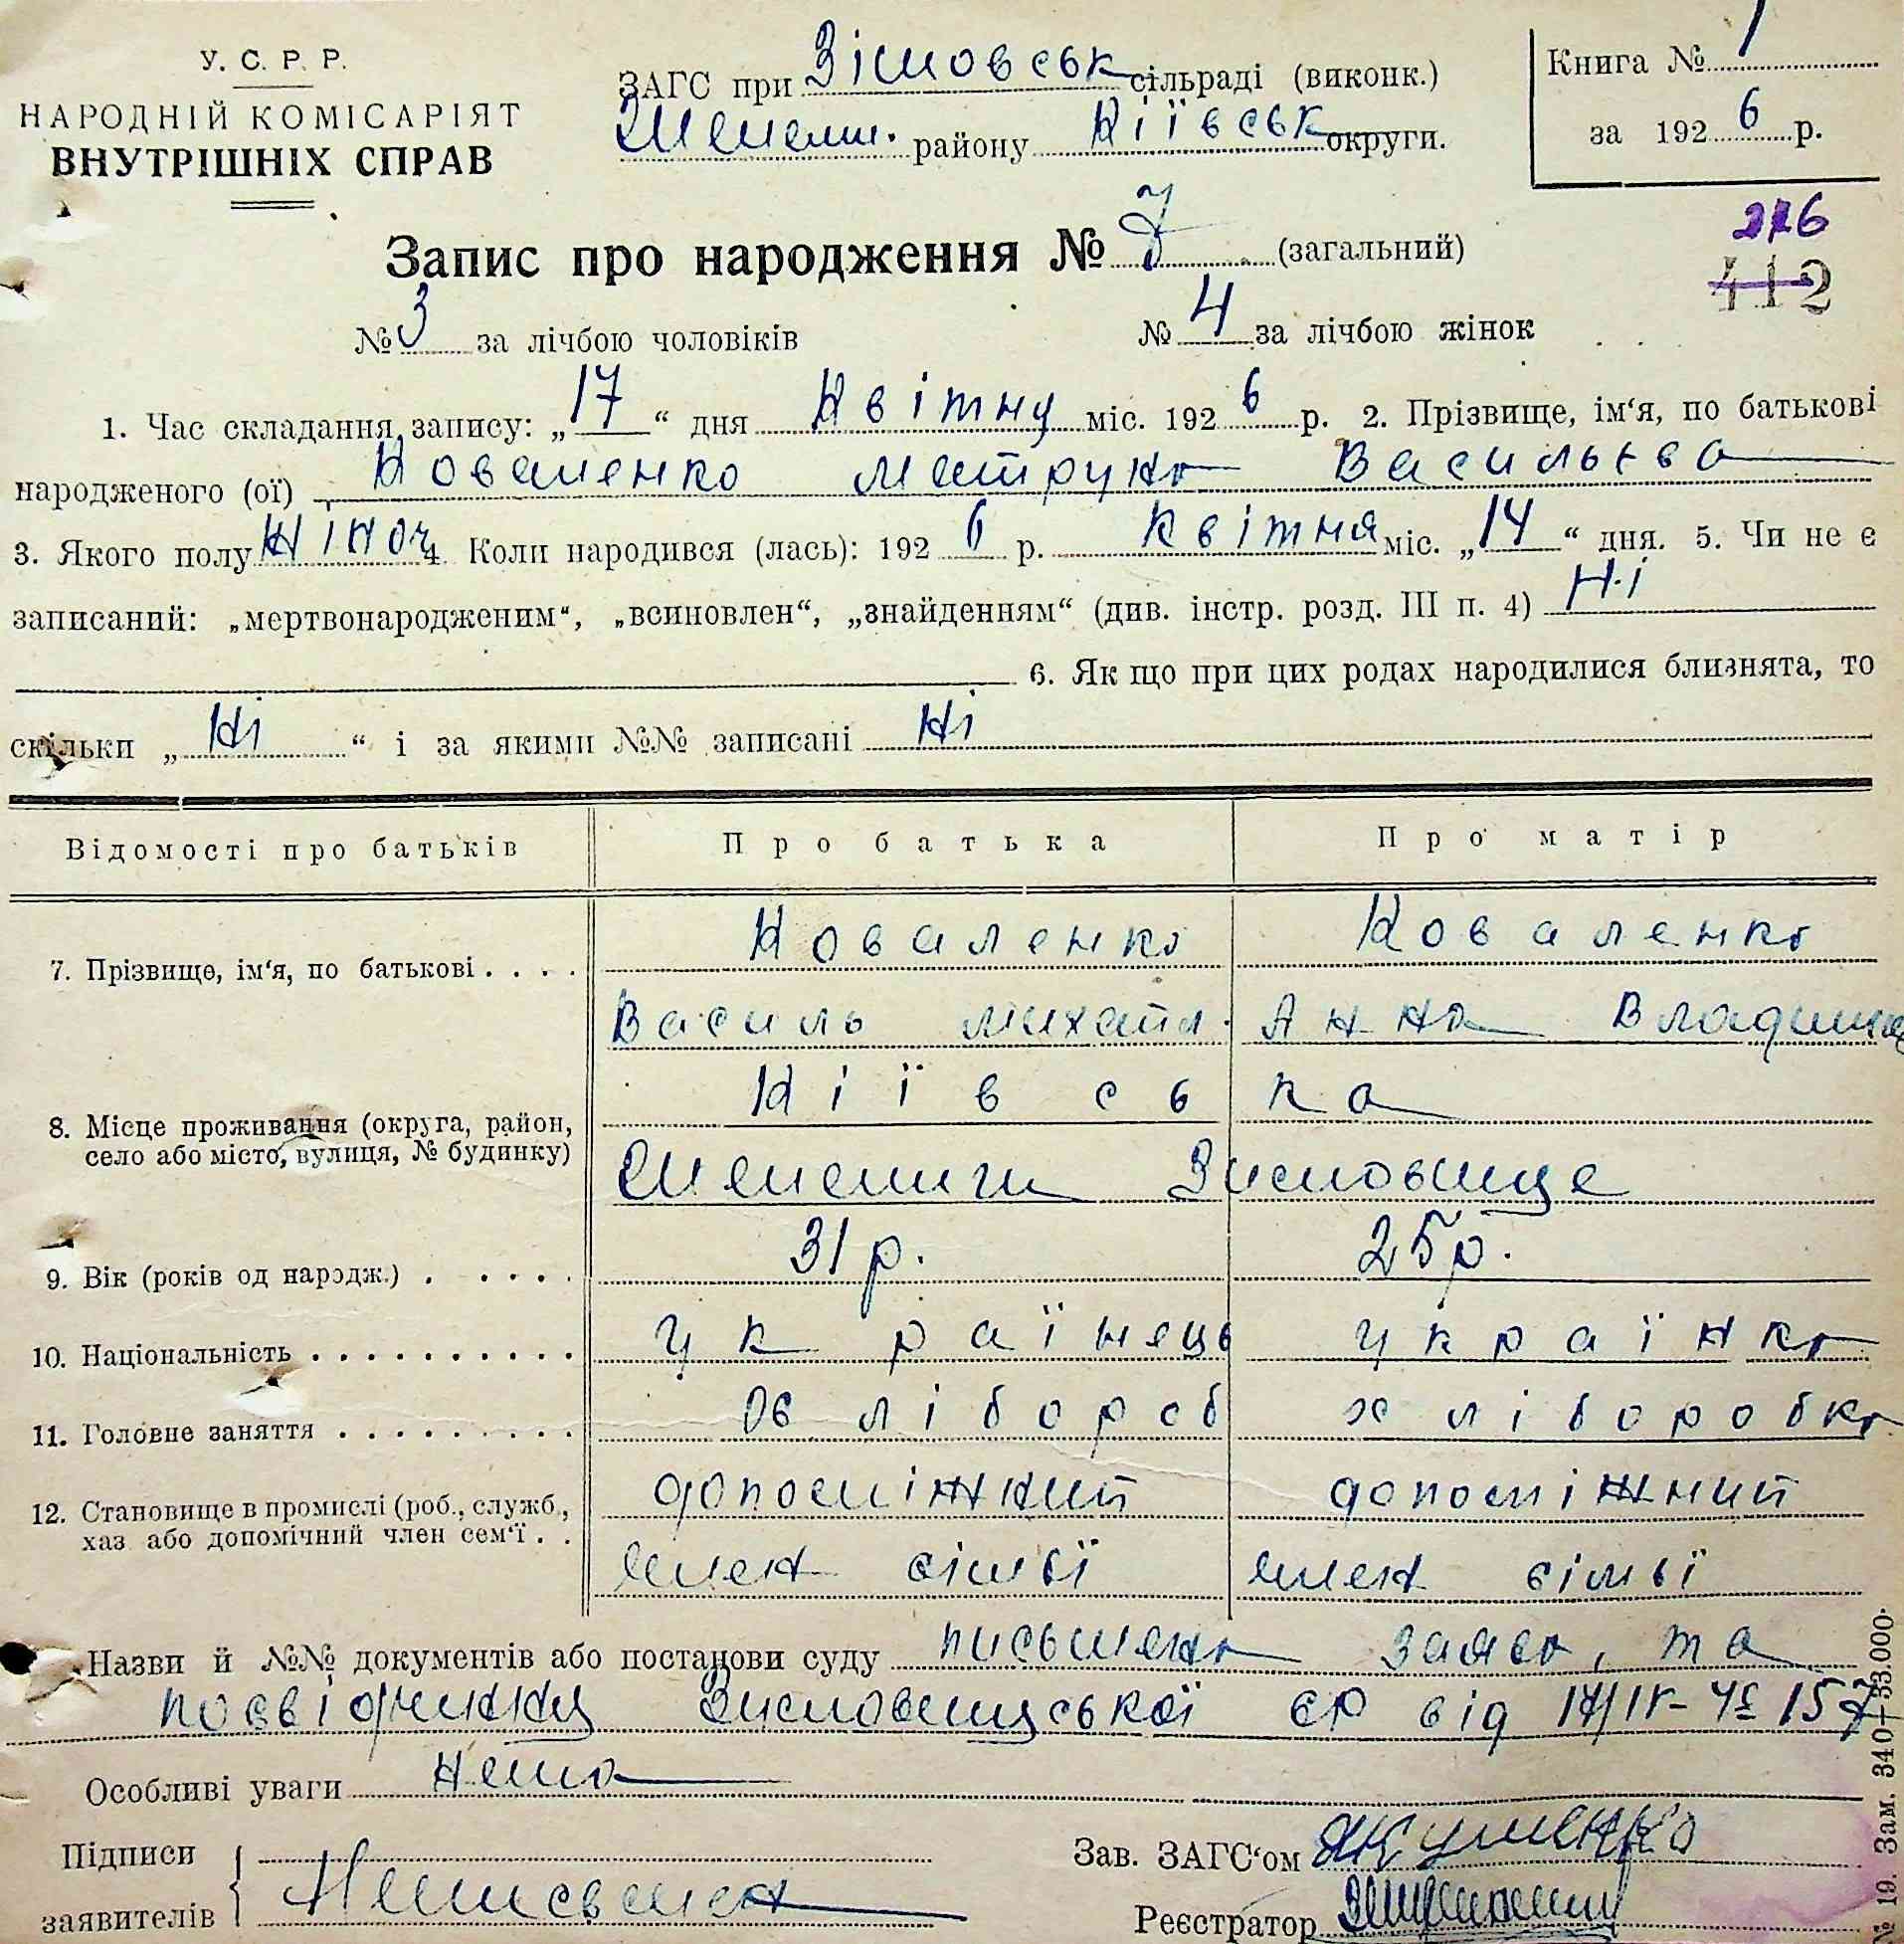 У. С. Р. Р.
НАРОДНІЙ КОМІСАРІЯТ
ВНУТРІШНІХ СПРАВ
ЗАГС при Зімовськ сільраді (виконк.)
району Кіївськ округи.
Книга № 1
за 1926 р.
Запис про народження № 7 (загальний)
276
412
№ 3 за лічбою чоловіків № 4 за лічбою жінок
1. Час складання запису: „17“ дня Квітну міс. 1926 р. 2. Прізвище, ім‘я, по батькові
народженого (ої) Коваленко Матруна Васильєва
3. Якого полу жіноч 4. Коли народився (лась): 1926 р. Квітня міс. „14“ дня. 5. Чи не є
записаний: „мертвонародженим“, „всиновлен“, „знайденням“ (див. інстр. розд. III п. 4) Ні
6. Як що при цих родах народилися близнята, то
скільки „Ні“ і за якими №№ записані Ні
Відомості про батьків Про батька Про матір
7. Прізвище, ім‘я, по батькові . . . . Коваленко Коваленко
Василь Михайл. Анна
8. Місце проживання (округа, район, село або місто, вулиця, № будинку) Кіївська
9. Вік (років од нарэдж.) . . . . . 31 р. 25 р.
10. Національність . . . . . . . . . . українець українка
11. Головне заняття . . . . . . . . . хлібороб хліборобка
12. Становище в промислі (роб., служб., хаз або допомічний член сем‘ї . . допоміжний допоміжний
член сімьї член сімьї
Назви й №№ документів або постанови суду письмена заява, та
посвідченну СР від
Особливі уваги нема
Підписи
заявителів Неписьмен
Зав. ЗАГС‘ом Якуменко
Реєстратор
№ 19. Зам. 340—33.000.